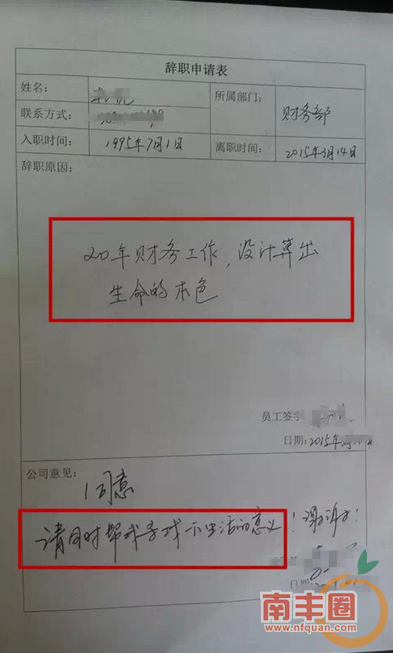 辞职申请表
姓名： 所属部门： 财务部
联系方式：
入职时间： 1995年7月1日 离职时间： 2015年3月14日
辞职原因：
20年财务工作，没计算出
生命的本色
员工签字
日期：2015年3月
公司意见： 同意
请同时帮我寻找下生活的意义！谢谢！
日期
南丰圈
www.nfquan.com